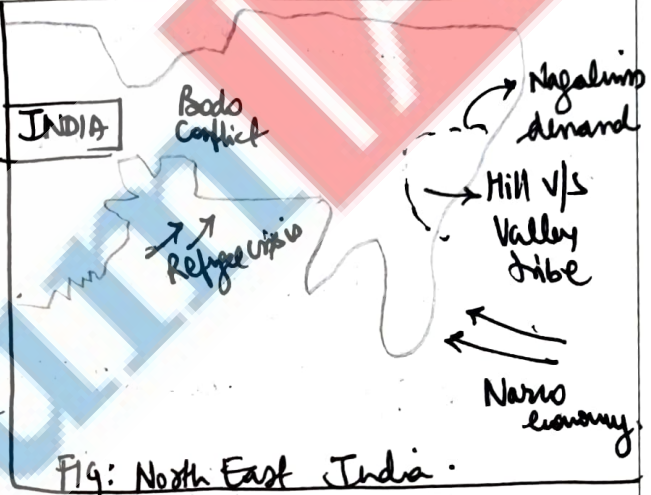 INDIA
Bodo
Conflict
Refugee crisis
Nagalim
demand
Hill v/s
Valley
tribe
Narco
economy.
FIG: North East India.